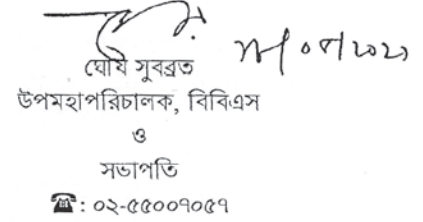 ঘোষ সুবব্রত
উপমহাপরিচালক, বিবিএস
ও
সভাপতি
☎: ০২-৫৫০০৭০৫৭